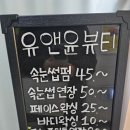 유앤윤뷰티
속눈썹펌 45~
속눈썹연장 50~
페이스왁싱 25~
바디왁싱 10~